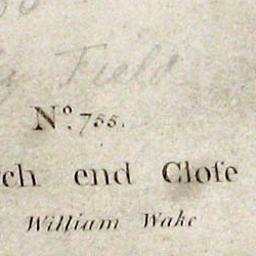 Field
Nº. 755.
ch end Clofe
William Wake